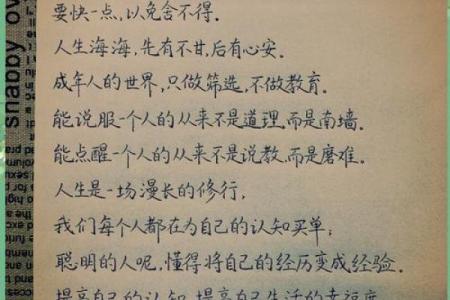 要快一点,以免舍不得.
人生海海,先有不甘,后有心安.
成年人的世界,只做筛选,不做教育.
能说服一个人的从来不是道理,而是南墙.
能点醒一个人的从来不是说教,而是磨难.
人生是一场漫长的修行,
我们每个人都在为自己的认知买单;
聪明的人呢,懂得将自己的经历变成经验.
提高自己的认知,提高自己生活的幸福度
shabby